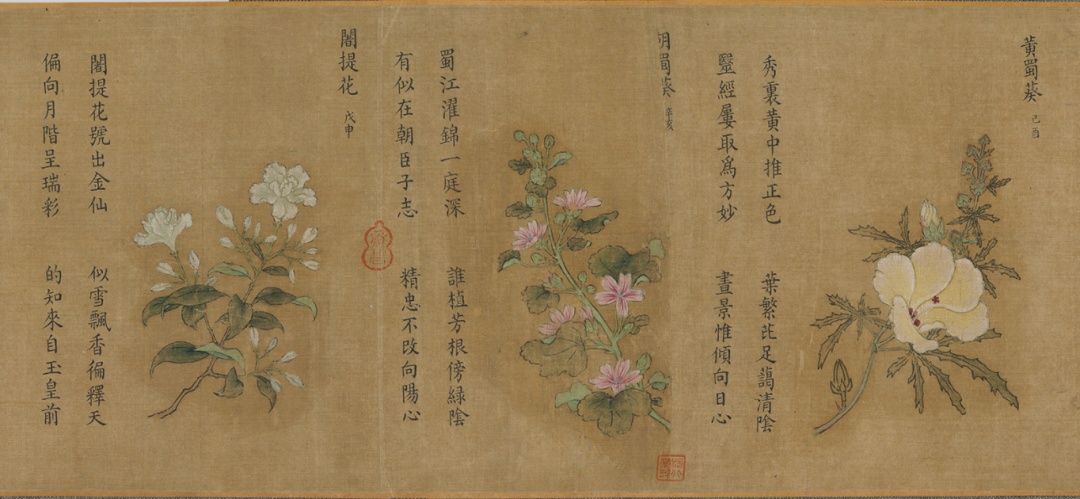 黃蜀葵 己酉
秀裏黃中推正色 葉繁茈足藹清陰
毉經屢取為方妙 晝景惟傾向日心
胡蜀葵 辛亥
蜀江濯錦一庭深 誰植芳根傍緑陰
有似在朝臣子志 精忠不改向陽心
闍提花 戊申
闍提花號出金仙 似雪飄香徧釋天
偏向月階呈瑞彩 的知來自玉皇前